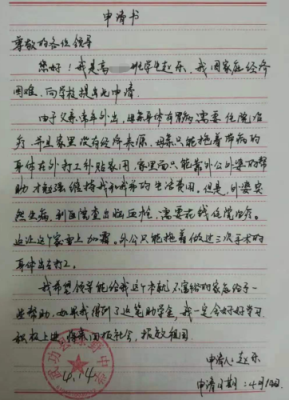 申请书
尊敬的各位领导
您好！我是高 班学生赵东，我因家庭经济
困难，向学校提出此申请。
由于父亲在外出，母亲身体有病需要住院治
疗，并且家里没有经济来源，母亲只能拖着带病的
身体在外打工补贴家用，家里面只能靠外公外婆的帮
助才勉强维持我和弟弟的生活费用。但是，外婆突
然生病，到医院查出脑血栓，需要花钱住院治疗。
这让这个家雪上加霜。外公只能拖着做过三次手术的
身体出去打工。
我希望领导能给我这个本就不富裕的家庭给予一
些帮助，如果我得到了这笔助学金，我一定会好好学习
积极上进，将来回报社会，报效祖国。
申请人：赵东
申请日期：4月14日